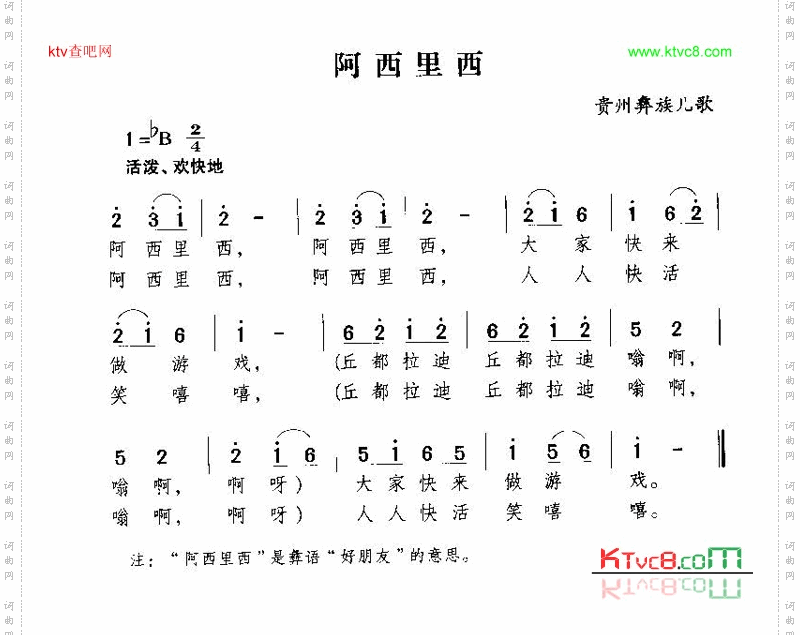 ktv查吧网
www.ktvc8.com
阿西里西
贵州彝族儿歌
1=♭B 2/4
活泼、欢快地
2 3 1 | 2 - | 2 3 1 | 2 - | 2 1 6 | 1 6 2 |
阿西里西, 阿西里西, 大家快来
阿西里西, 阿西里西, 人人快活
2 1 6 | 1 - | 6 2 1 2 | 6 2 1 2 | 5 2 |
做游戏, (丘都拉迪 丘都拉迪 嗡啊,
笑嘻嘻, (丘都拉迪 丘都拉迪 嗡啊,
5 2 | 2 1 6 | 5 1 6 5 | 1 5 6 | 1 - ‖
嗡啊, 啊呀) 大家快来 做游戏。
嗡啊, 啊呀) 人人快活 笑嘻嘻。
注: “阿西里西”是彝语“好朋友”的意思。
KTVC8.COM
词曲网